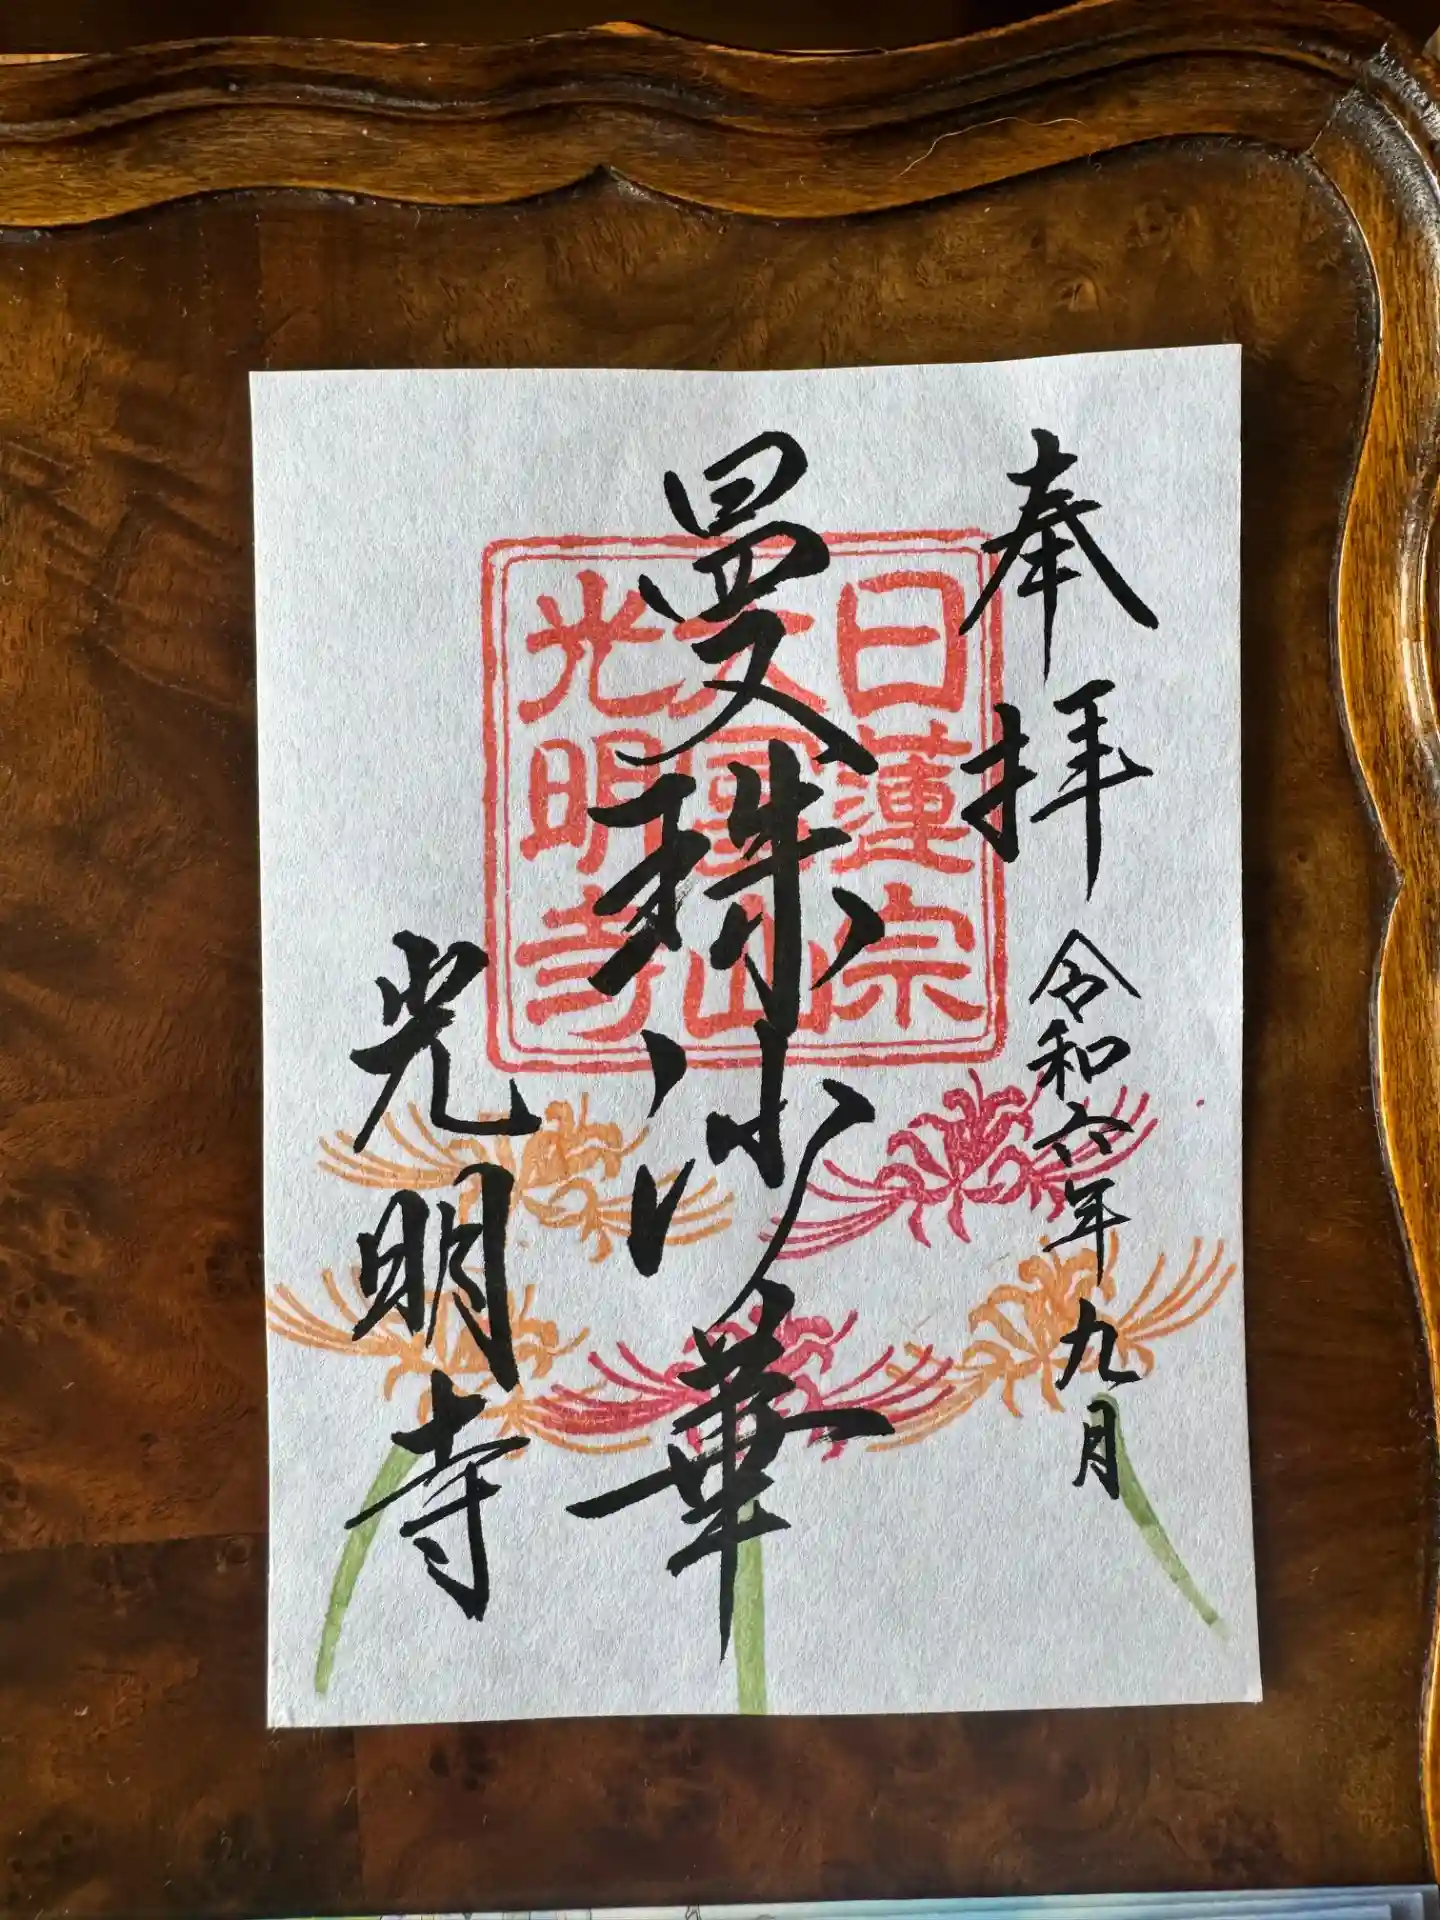 奉拝
令和六年九月
曼珠沙華
光明寺
日蓮宗
山
光明寺